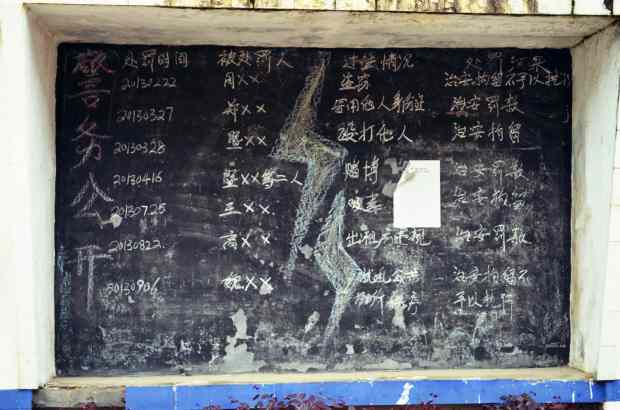 警务公开
处罚时间 被处罚人 违法情况 处罚结果
20130222 周×× 盗窃 治安拘留不予以执行
20130327 ×× 冒用他人身份证 治安罚款
20130328 ×× 殴打他人 治安拘留
20130416 ××等二人 赌博 治安罚款
20130725 王×× 吸毒 治安拘留
20130822 高×× 出租 治安罚款
20130906 魏×× 扰乱公共 治安拘留不
秩序 予以执行